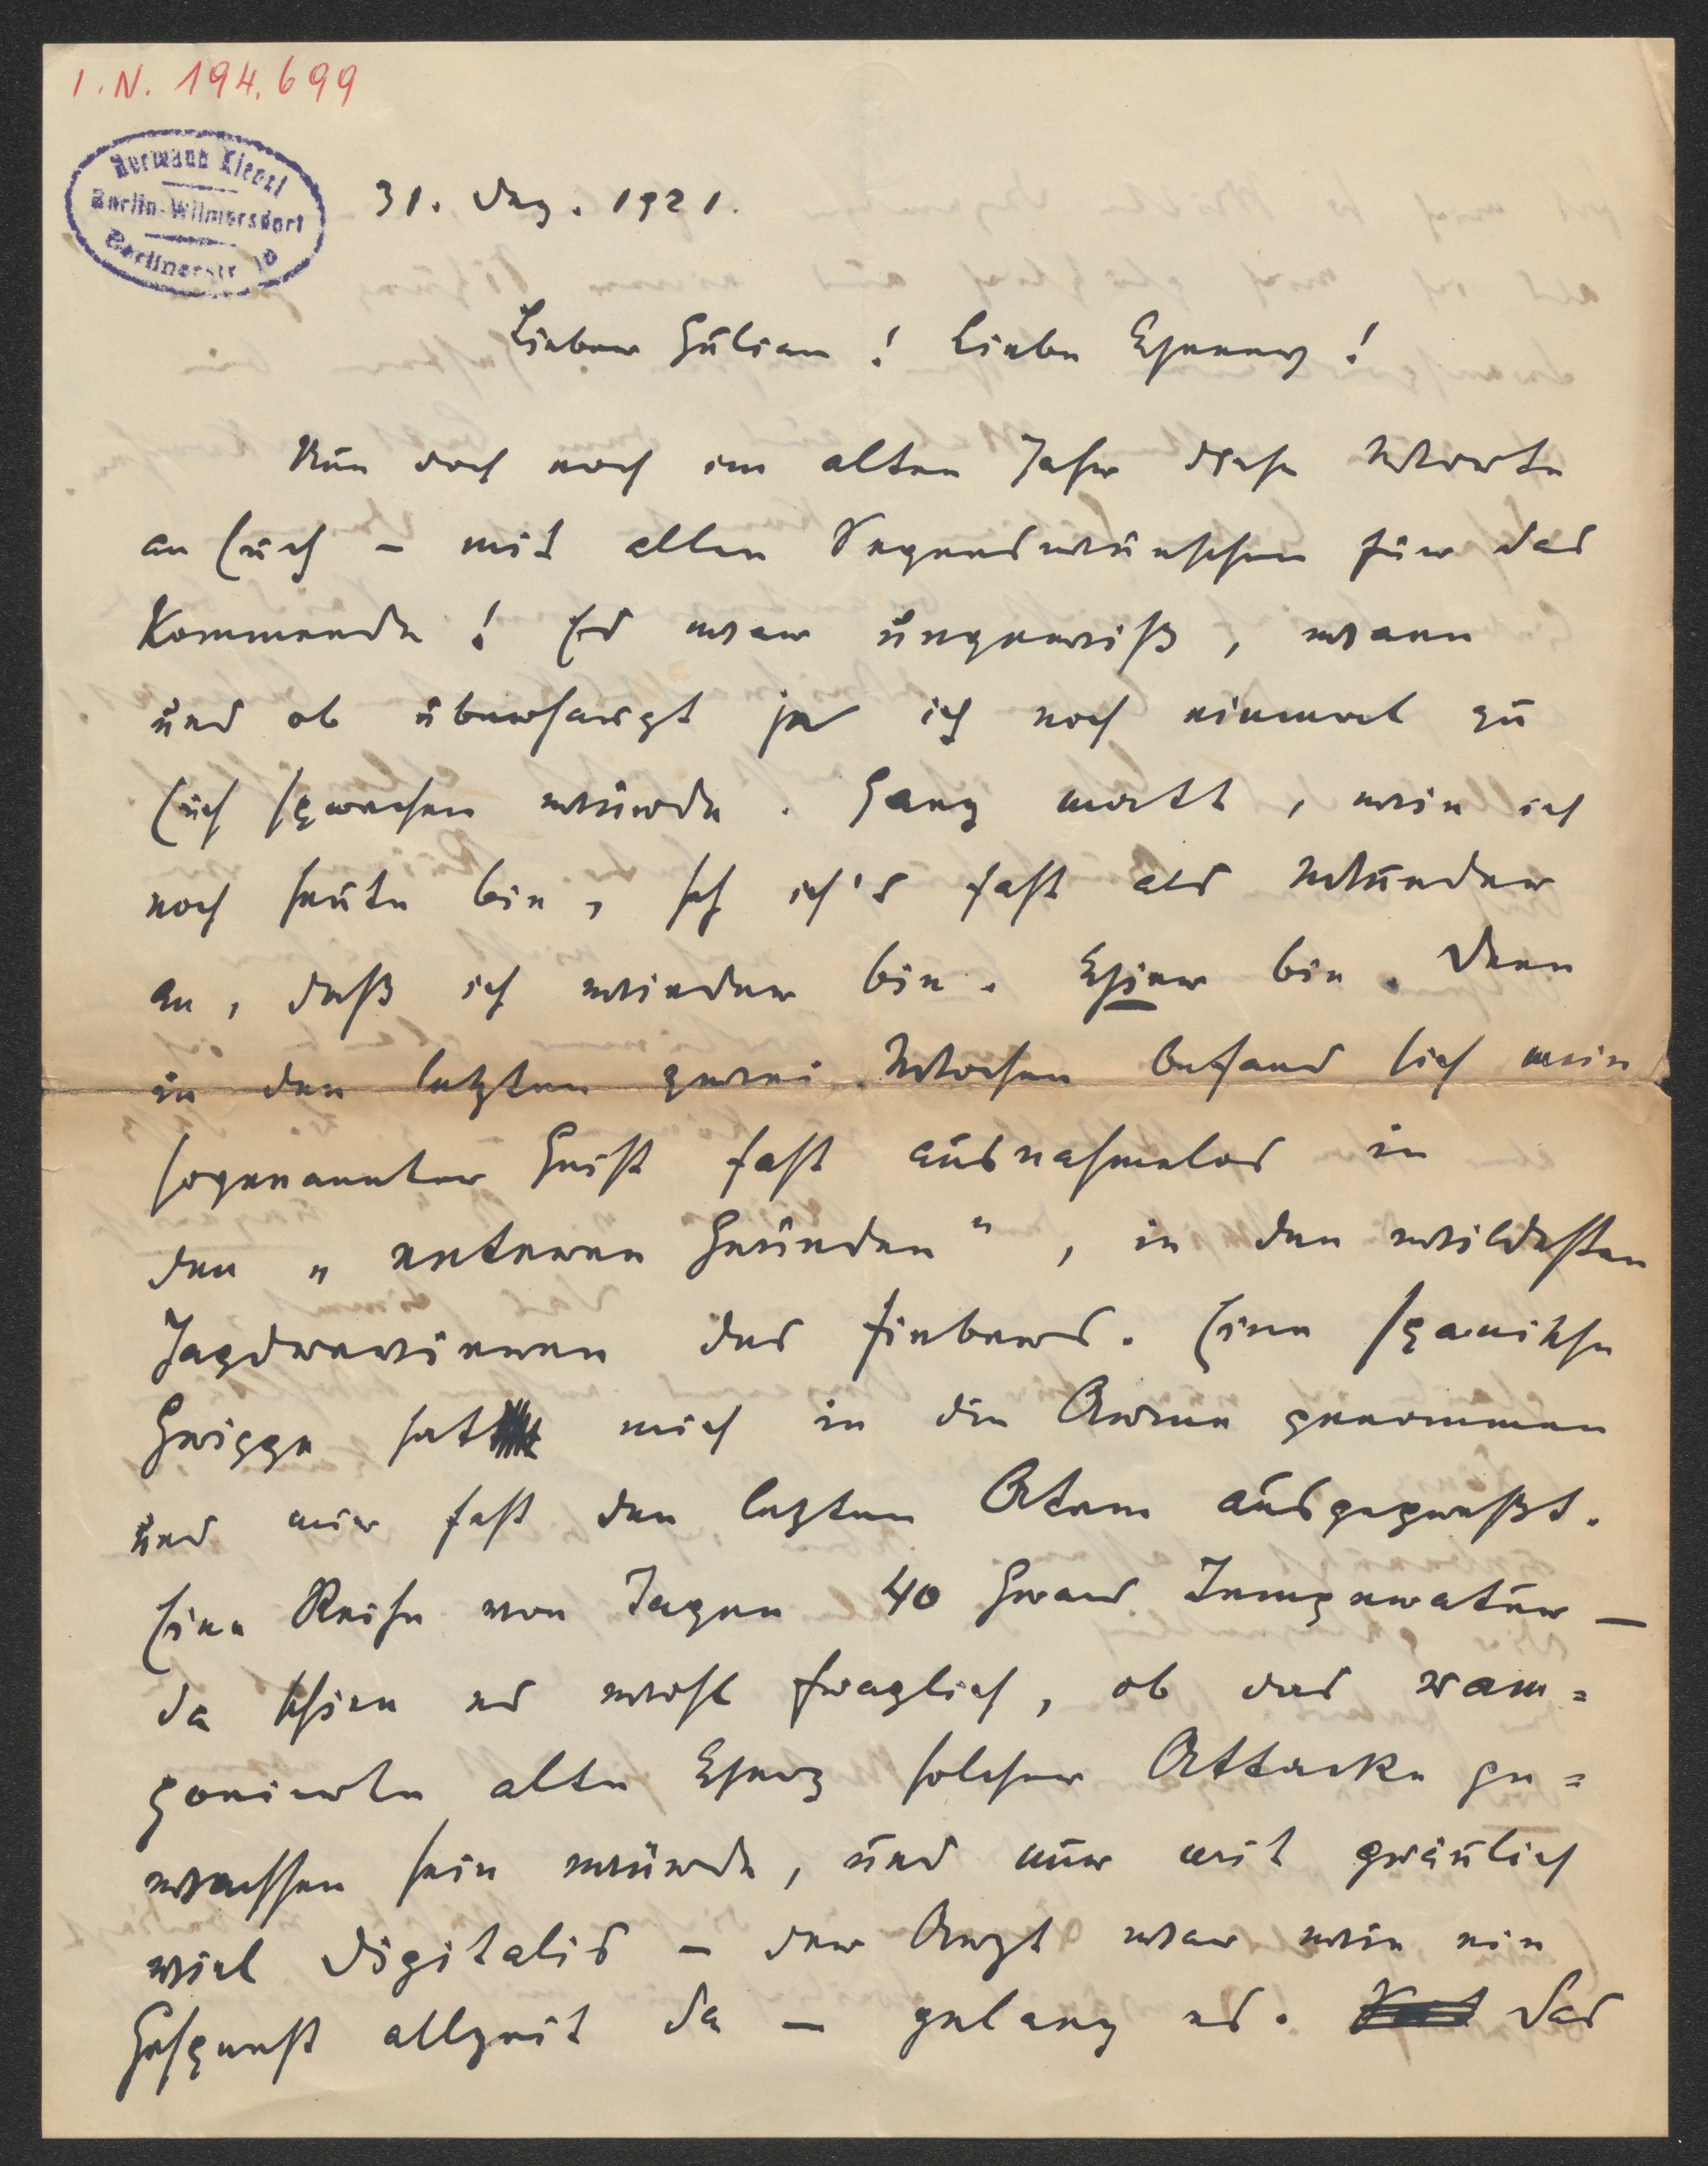 I. N. 194.699
Hermann Kienzl
Berlin-Wilmersdorf
Berlinerstr. 10
31. Dez. 1921.
Lieber Julian! Liebe Jenny!
Nun doch noch im alten Jahr diese Worte
an Euch – mit allen Segenswünschen für das
Kommende! Es war ungewiß, wann
und ob überhaupt je ich noch einmal zu
Euch sprechen würde. Ganz matt, wie ich
noch heute bin, seh ich's fast als Wunder
an, daß ich wieder bin. Hier bin. Denn
in den letzten zwei Wochen befand sich mein
sogenannter Geist fast ausnahmslos in
den „enteren Gründen", in den wildesten
Jagdrevieren des Fiebers. Eine spanische
Grippe hat mich in die Arme genommen
und mir fast den letzten Atem ausgepreßt.
Eine Reihe von Tagen 40 Grad Temperatur –
da schien es wohl fraglich, ob das ram=
ponierte alte Herz solcher Attacke ge=
wachsen sein würde, und nur mit gräulich
viel Digitalis – der Arzt war wie ein
Gespenst allzeit da – gelang es. Das